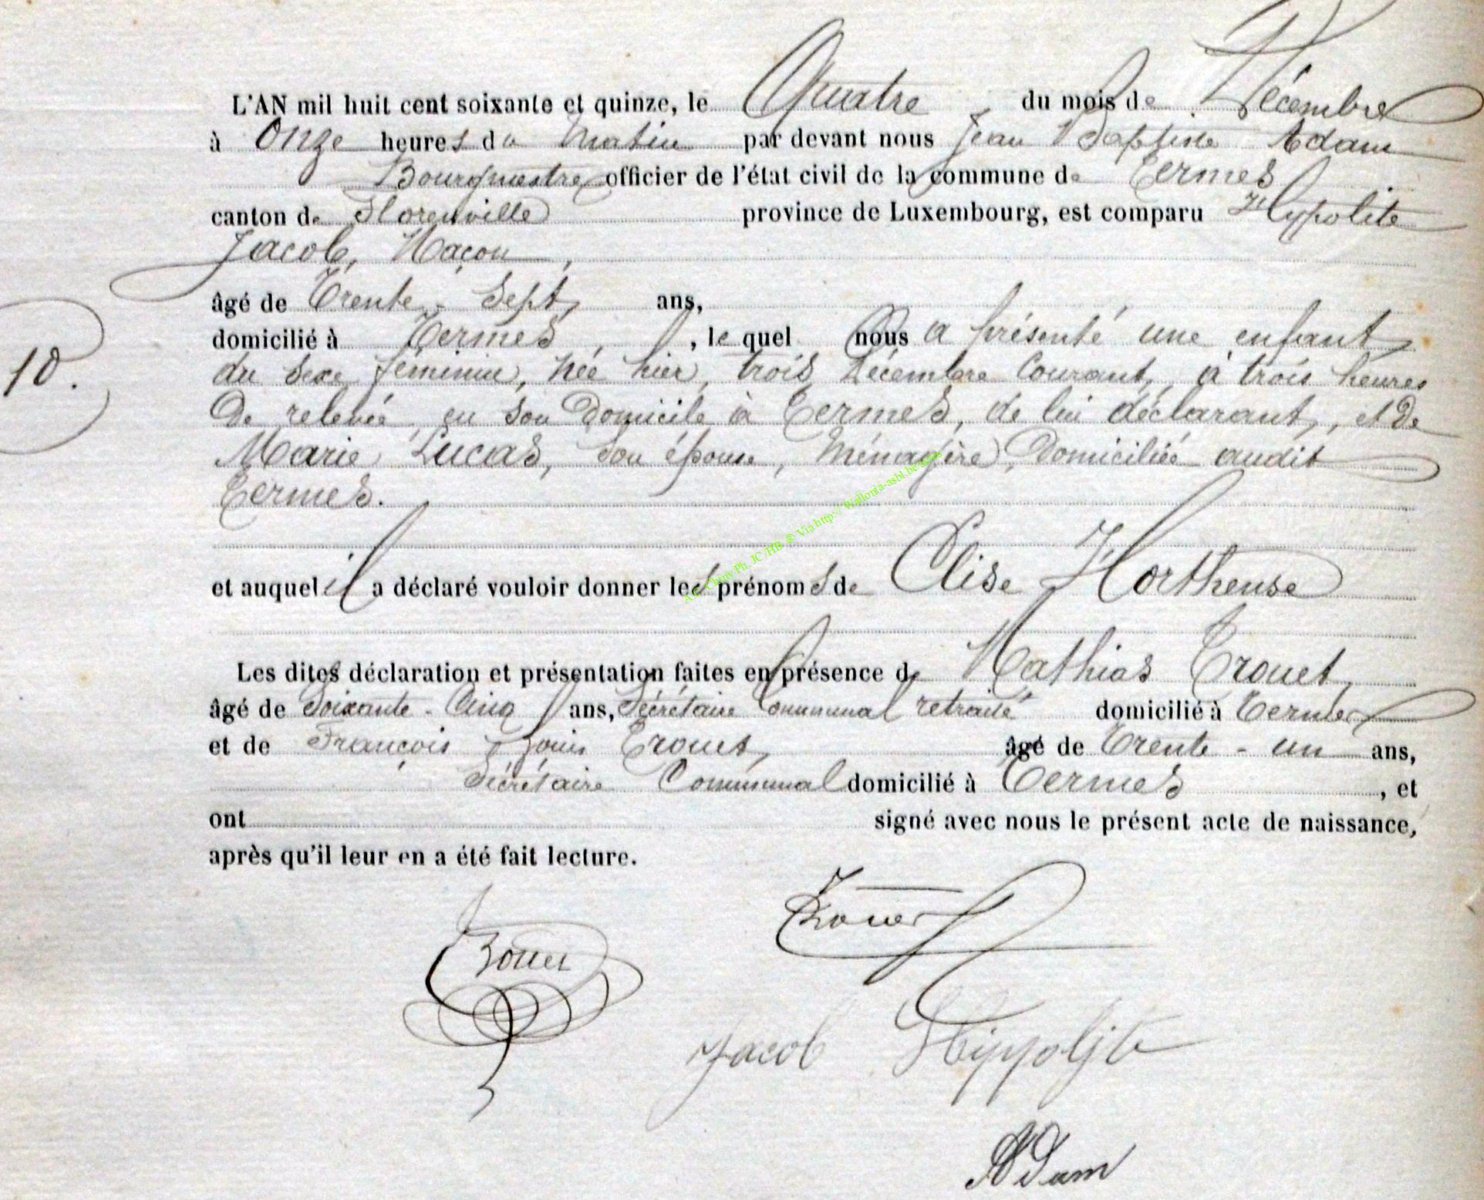 L'AN mil huit cent soixante et quinze, le Quatre du mois de Décembre
à Onze heures du Matin par devant nous Jean Baptiste Adam
Bourgmestre officier de l'état civil de la commune de Termes
canton de Florenville province de Luxembourg, est comparu Hypolite
Jacob, Maçon,
âgé de Trente-Sept, ans,
domicilié à Termes, le quel nous a présenté une enfant
10. du sexe féminin, née hier, trois Décembre Courant, à trois heures
De relevée, en son Domicile à Termes, de lui déclarant, et De
Marie Lucas, son épouse, Ménagère, Domiciliée audit
Termes.
et auquel il a déclaré vouloir donner les prénoms de Elise Hortheuse
Les dites déclaration et présentation faites en présence de Mathias Trouet,
âgé de Soixante-Cinq ans, Sécrétaire Communal retraité domicilié à Termes
et de François Louis Trouet, âgé de Trente-un ans,
Sécrétaire Communal domicilié à Termes, et
ont signé avec nous le présent acte de naissance,
après qu'il leur en a été fait lecture.
Trouet
Trouet
Jacob Hippolyte
Adam